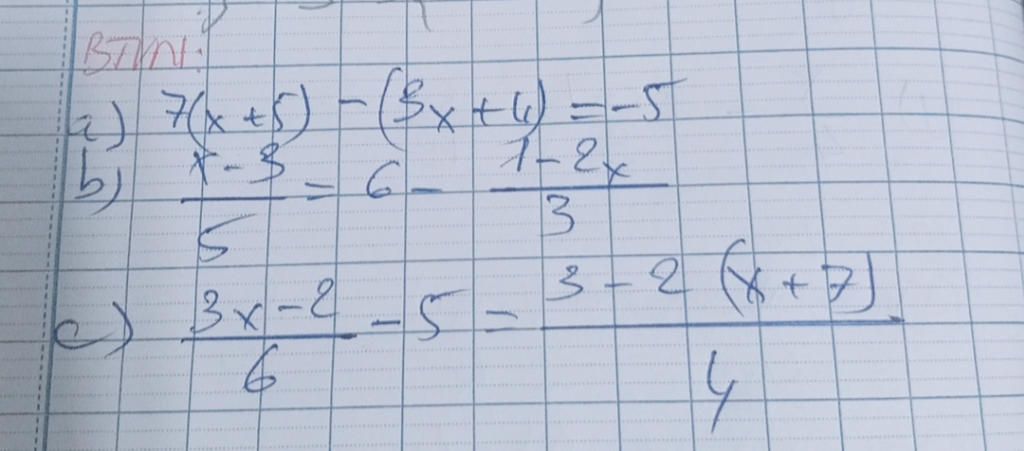 BTVN:
a) 7(x + 5) - (3x + 4) = -5
b) \frac{x - 3}{5} = 6 - \frac{1 - 2x}{3}
c) \frac{3x - 2}{6} - 5 = \frac{3 - 2(x + 7)}{4}